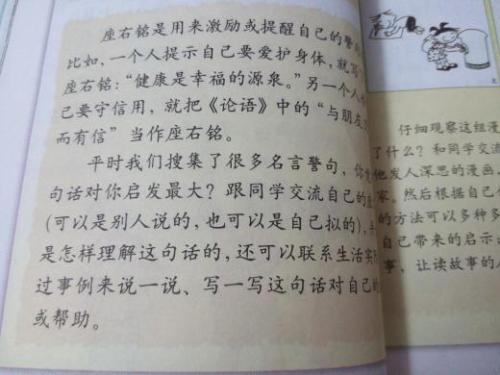 座右铭是用来激励或提醒自己的警
比如,一个人提示自己要爱护身体,就写
座右铭:“健康是幸福的源泉。”另一个人
己要守信用,就把《论语》中的“与朋友
而有信”当作座右铭。
平时我们搜集了很多名言警句,你
句话对你启发最大?跟同学交流自己的
(可以是别人说的,也可以是自己拟的),
是怎样理解这句话的,还可以联系生活实
过事例来说一说、写一写这句话对自己的
或帮助。
仔细观察这组漫
了什么?和同学交流
他发人深思的漫画,
家。然后根据自己
的方法可以多种多
自己带来的启示
事,让读故事的人